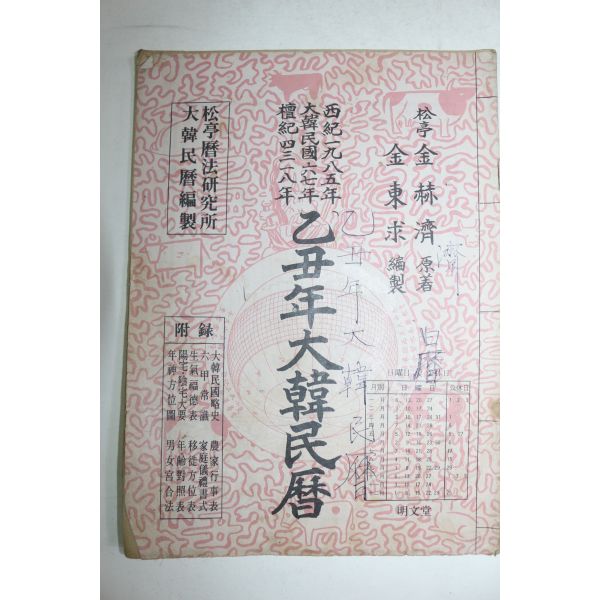 松亭 金赫濟 原着
金東求 編製
西紀一九八五年
大韓民國六七年
檀紀四三一八年
松亭曆法硏究所
大韓民曆編製
乙丑年大韓民曆
乙丑年大韓民曆
濟
日曆
附錄
大韓民國略史 農家行事表
六甲常識 家庭儀禮書式
生氣福德表 移徙方位表
陽宅·陰宅大要 年齡對照表
年神方位圖 男女宮合法
月別 日曜日
明文堂